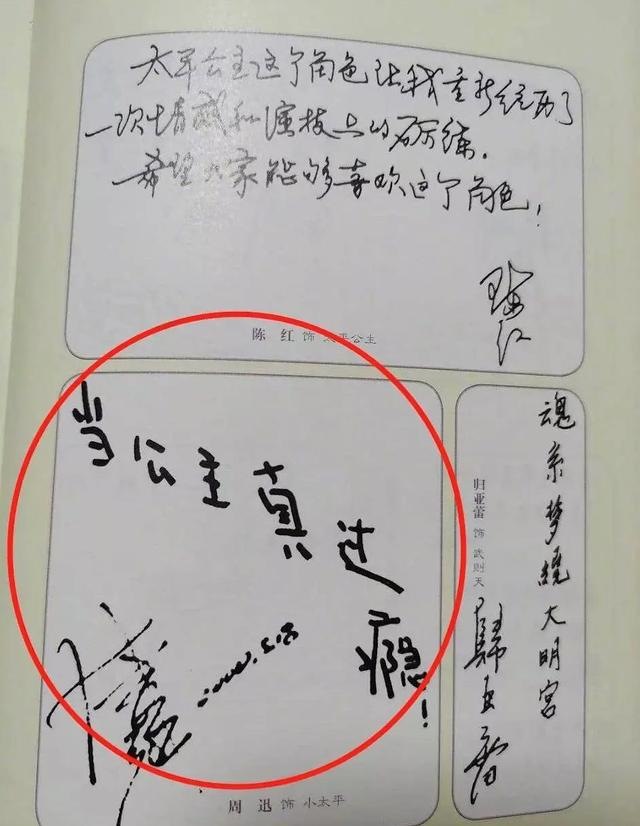 太平公主这个角色让我重新经历了
一次情感和演技上的磨练.
希望大家能够喜欢这个角色!
陈红
陈 红 饰 太平公主
当公主真过瘾!
周 迅 饰 小太平
魂系梦绕大明宫
归亚蕾 饰 武则天
歸亚蕾